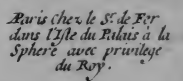 Paris Chez le Sr. de Fer
dans l'Isle du Palais à la
Sphere avec privilege
du Roy.